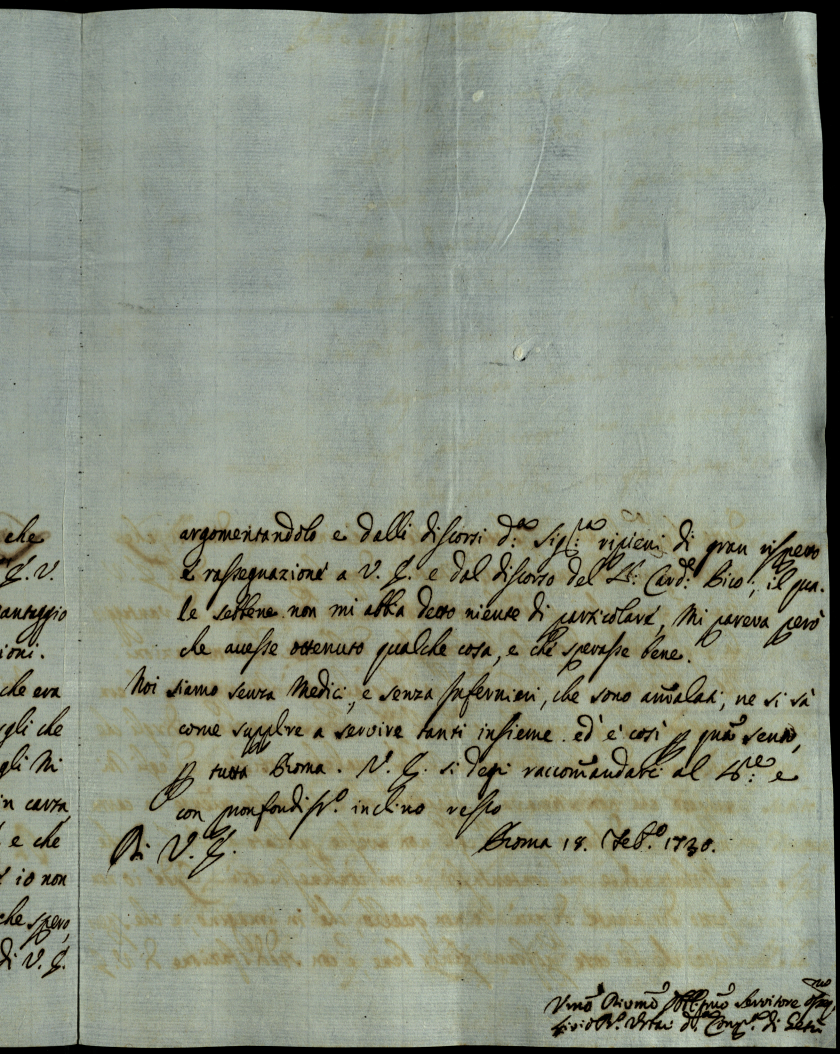 che
argomentandolo e dalli discorsi d:ᵃ Sig:ʳᵃ ripieni di gran rispetto
E. V.
e rassegnazione a V. E. e dal discorso del Sr: Card: Bico; il qua-
vantaggio
le sebbene non mi abbia detto niente di particolare, mi pareva però
ioni.
che avesse ottenuto qualche cosa, e che sperasse bene.
che era
Noi siamo senza Medici, e senza Infermieri, che sono amalati, ne si sà
egli che
come supplire a servire tanti insieme. ed è così p quãto sento,
gli Mi
p tutta Roma. V. E. si degni raccomandarci al Sr:ᵉ e
in carta,
con profondisS.º inclino resto
e che
Di V. E.
Roma 18. Feb.º 1730.
io non
che spero,
di V. E.
Umõ Divmõ Obblig.mõ Servitore osseq.mo
di Gesù